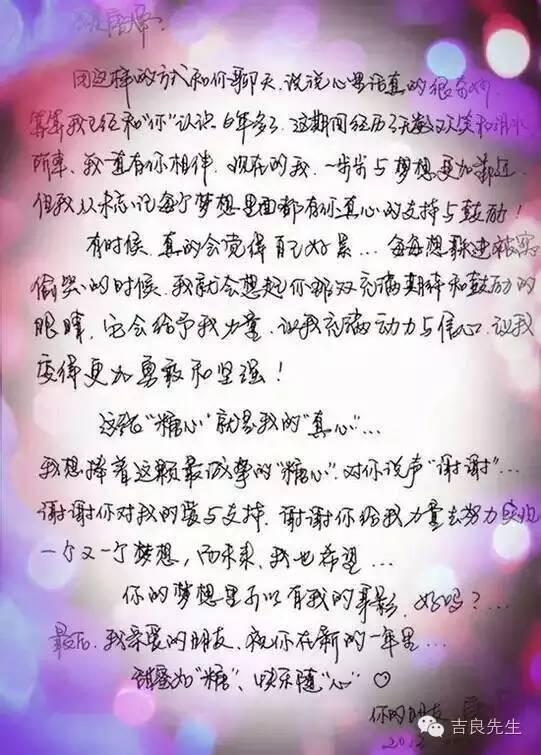 用这样的方式和你聊天，说说心里话真的很奇妙，
算算我已经和“你”认识6年多了，这期间经历了无数欢笑和泪水，
所幸，我一直有你相伴，现在的我，一步步与梦想更加靠近，
但我从未忘记每个梦想里面都有你真心的支持与鼓励！
有时候，真的会觉得自己好累…每每想躲进被窝
偷哭的时候，我就会想起你那双充满期待和鼓励的
眼睛，它会给予我力量，让我充满动力与信心，让我
变得更加勇敢和坚强！
这张“糖心”就是我的“真心”…
我想捧着这颗最诚挚的“糖心”，对你说声“谢谢”…
谢谢你对我的爱与支持，谢谢你给我力量去努力实现
一个又一个梦想，而未来，我也希望…
你的梦想里可以有我的身影，好吗？…
最后，我亲爱的朋友，祝你在新的一年里…
甜蜜如“糖”、快乐随“心”♡
你的朋友
吉良先生